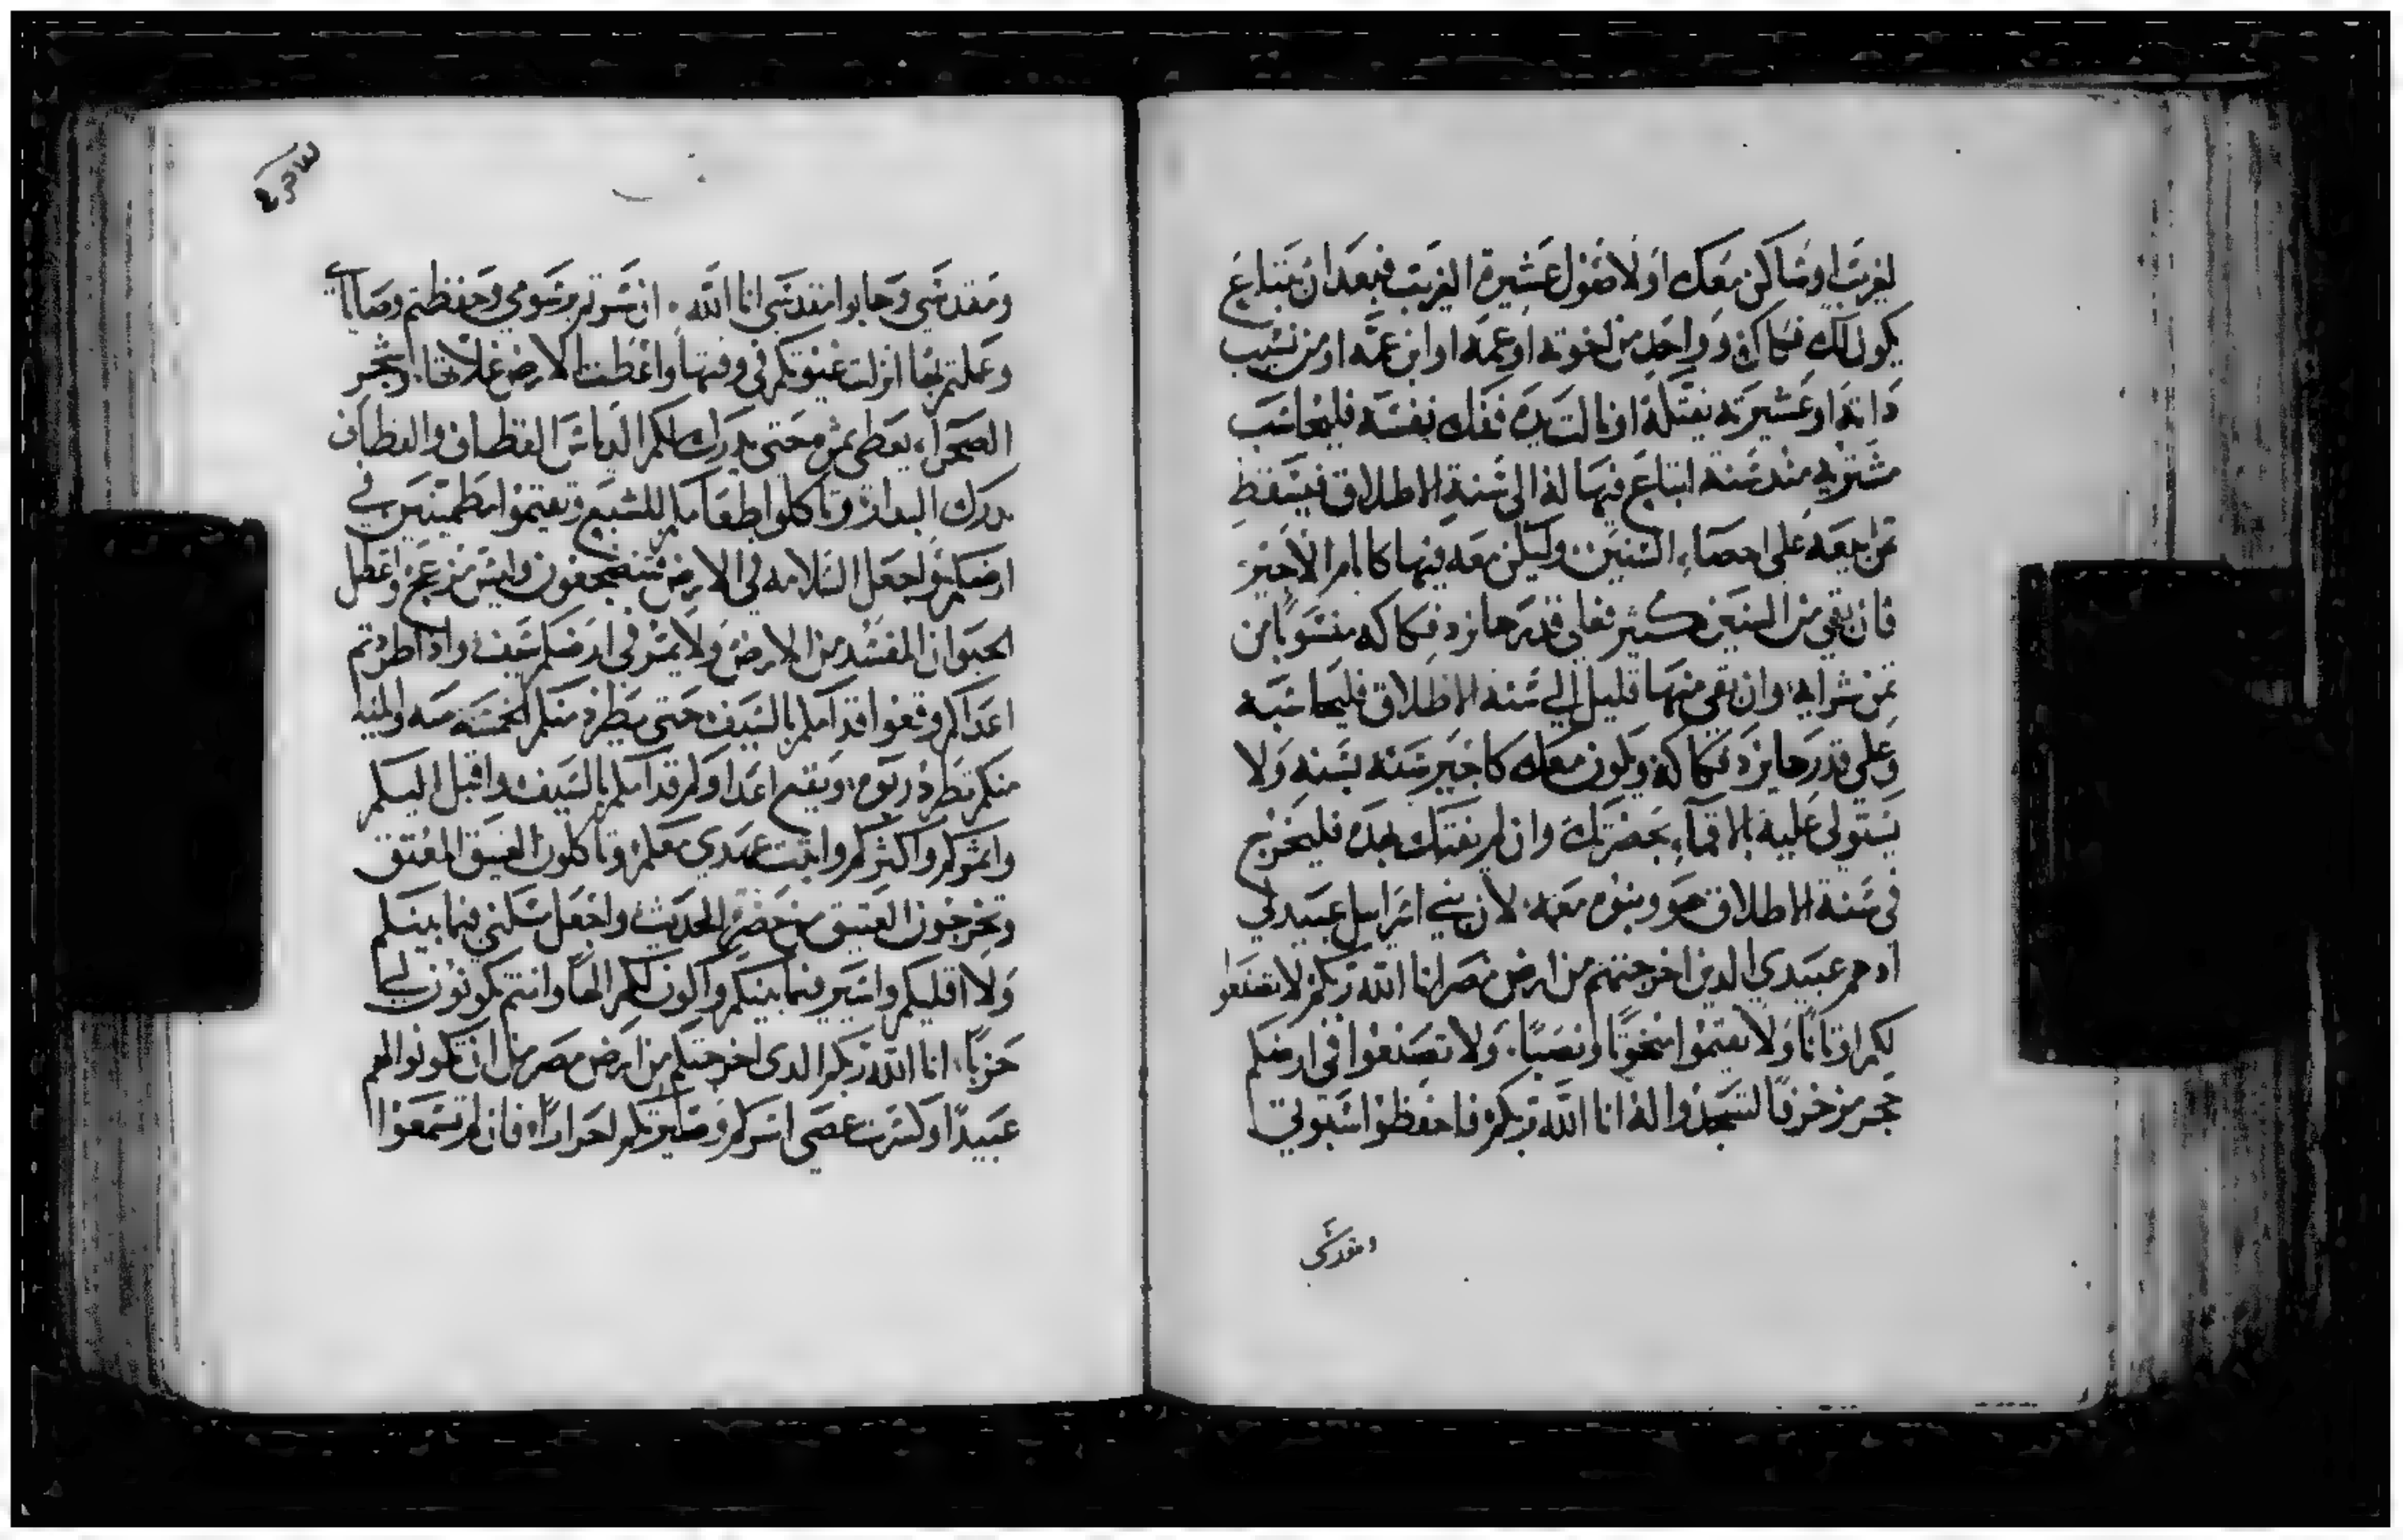 لغريب او ساكن معك او لاصول عشيرة الغريب فبعد ان يتباع
يكون لك فكاك و واحد من اخوته او عمه او ابن عمه او من نسيب
ذاته او عشيرته يفتكه او نالت يده ففك نفسه فليحاسب
مشتريه منذ سنة ابتاع فيها له الى سنة الاطلاق فيسقط
ثمن بيعه على احصاء السنين وليكن معه فيها كايام الاجير
فان بقي من السنين كثير فعلى قدرها يرد فكاكه منسوبا من
ثمن شرايه وان بقي منها قليل الي سنة الاطلاق فليحاسبه
وعلى قدرها يرد فكاكه ويكون معك كاجير سنه بسنه ولا
يستولى عليه بالاقماء بحضرتك وان لم يفتك بهده فليخرج
في سنة الاطلاق هو وبنوه معه لان بني اسرايل عبيدلي
اذ هم عبيدي الذين اخرجتهم من ارض مصر انا الله ربكم لا تصنعوا
لكم اوثانا ولا تقيموا منحوتا ونصبا ولا تصنعوا في ارضكم
حجر مزخرفا لتسجدوا له انا الله ربكم فاحفظوا سبوتي
ومقدسي
ومقدسي وهابوا مقدسي انا الله ان سرتم برسومي وحفظتم وصاياي
وعملتم بها انزلت غيوثكم في وقتها واعطت الارض غلاتها وشجر
الصحراء يعطى ثمره حتى يدرك لكم الدياس القطاف والقطاف
يدرك البدار وتاكلوا طعامكم للشبع وتقيموا مطمينين في
ارضكم واجعل السلامه في الارض فتضجعون وليس مزعج واعطل
الحيوان المفسد من الارض ولا يمر في ارضكم سيف واذا طردتم
اعداكم وقعوا قدامكم بالسيف حتى يطرد منكم الخمسة مية والمية
منكم تطرد ربوه ويقع اعداوكم قدامكم بالسيف واقبل اليكم
وانميكم واكثركم واثبت عهدي معكم وتاكلون العتيق المعتق
وتخرجون العتيق من حضرة الحديث واجعل سكني فيما بينكم
ولا اقليكم واسير فيما بينكم واكون لكم الها وانتم تكونون لي
حزبا انا الله ربكم الدى اخرجتكم من ارض مصر من ان تكونوا لهم
عبيدا وكسرت عصى اسركم وصيرتكم احرارا فان لم تسمعوا